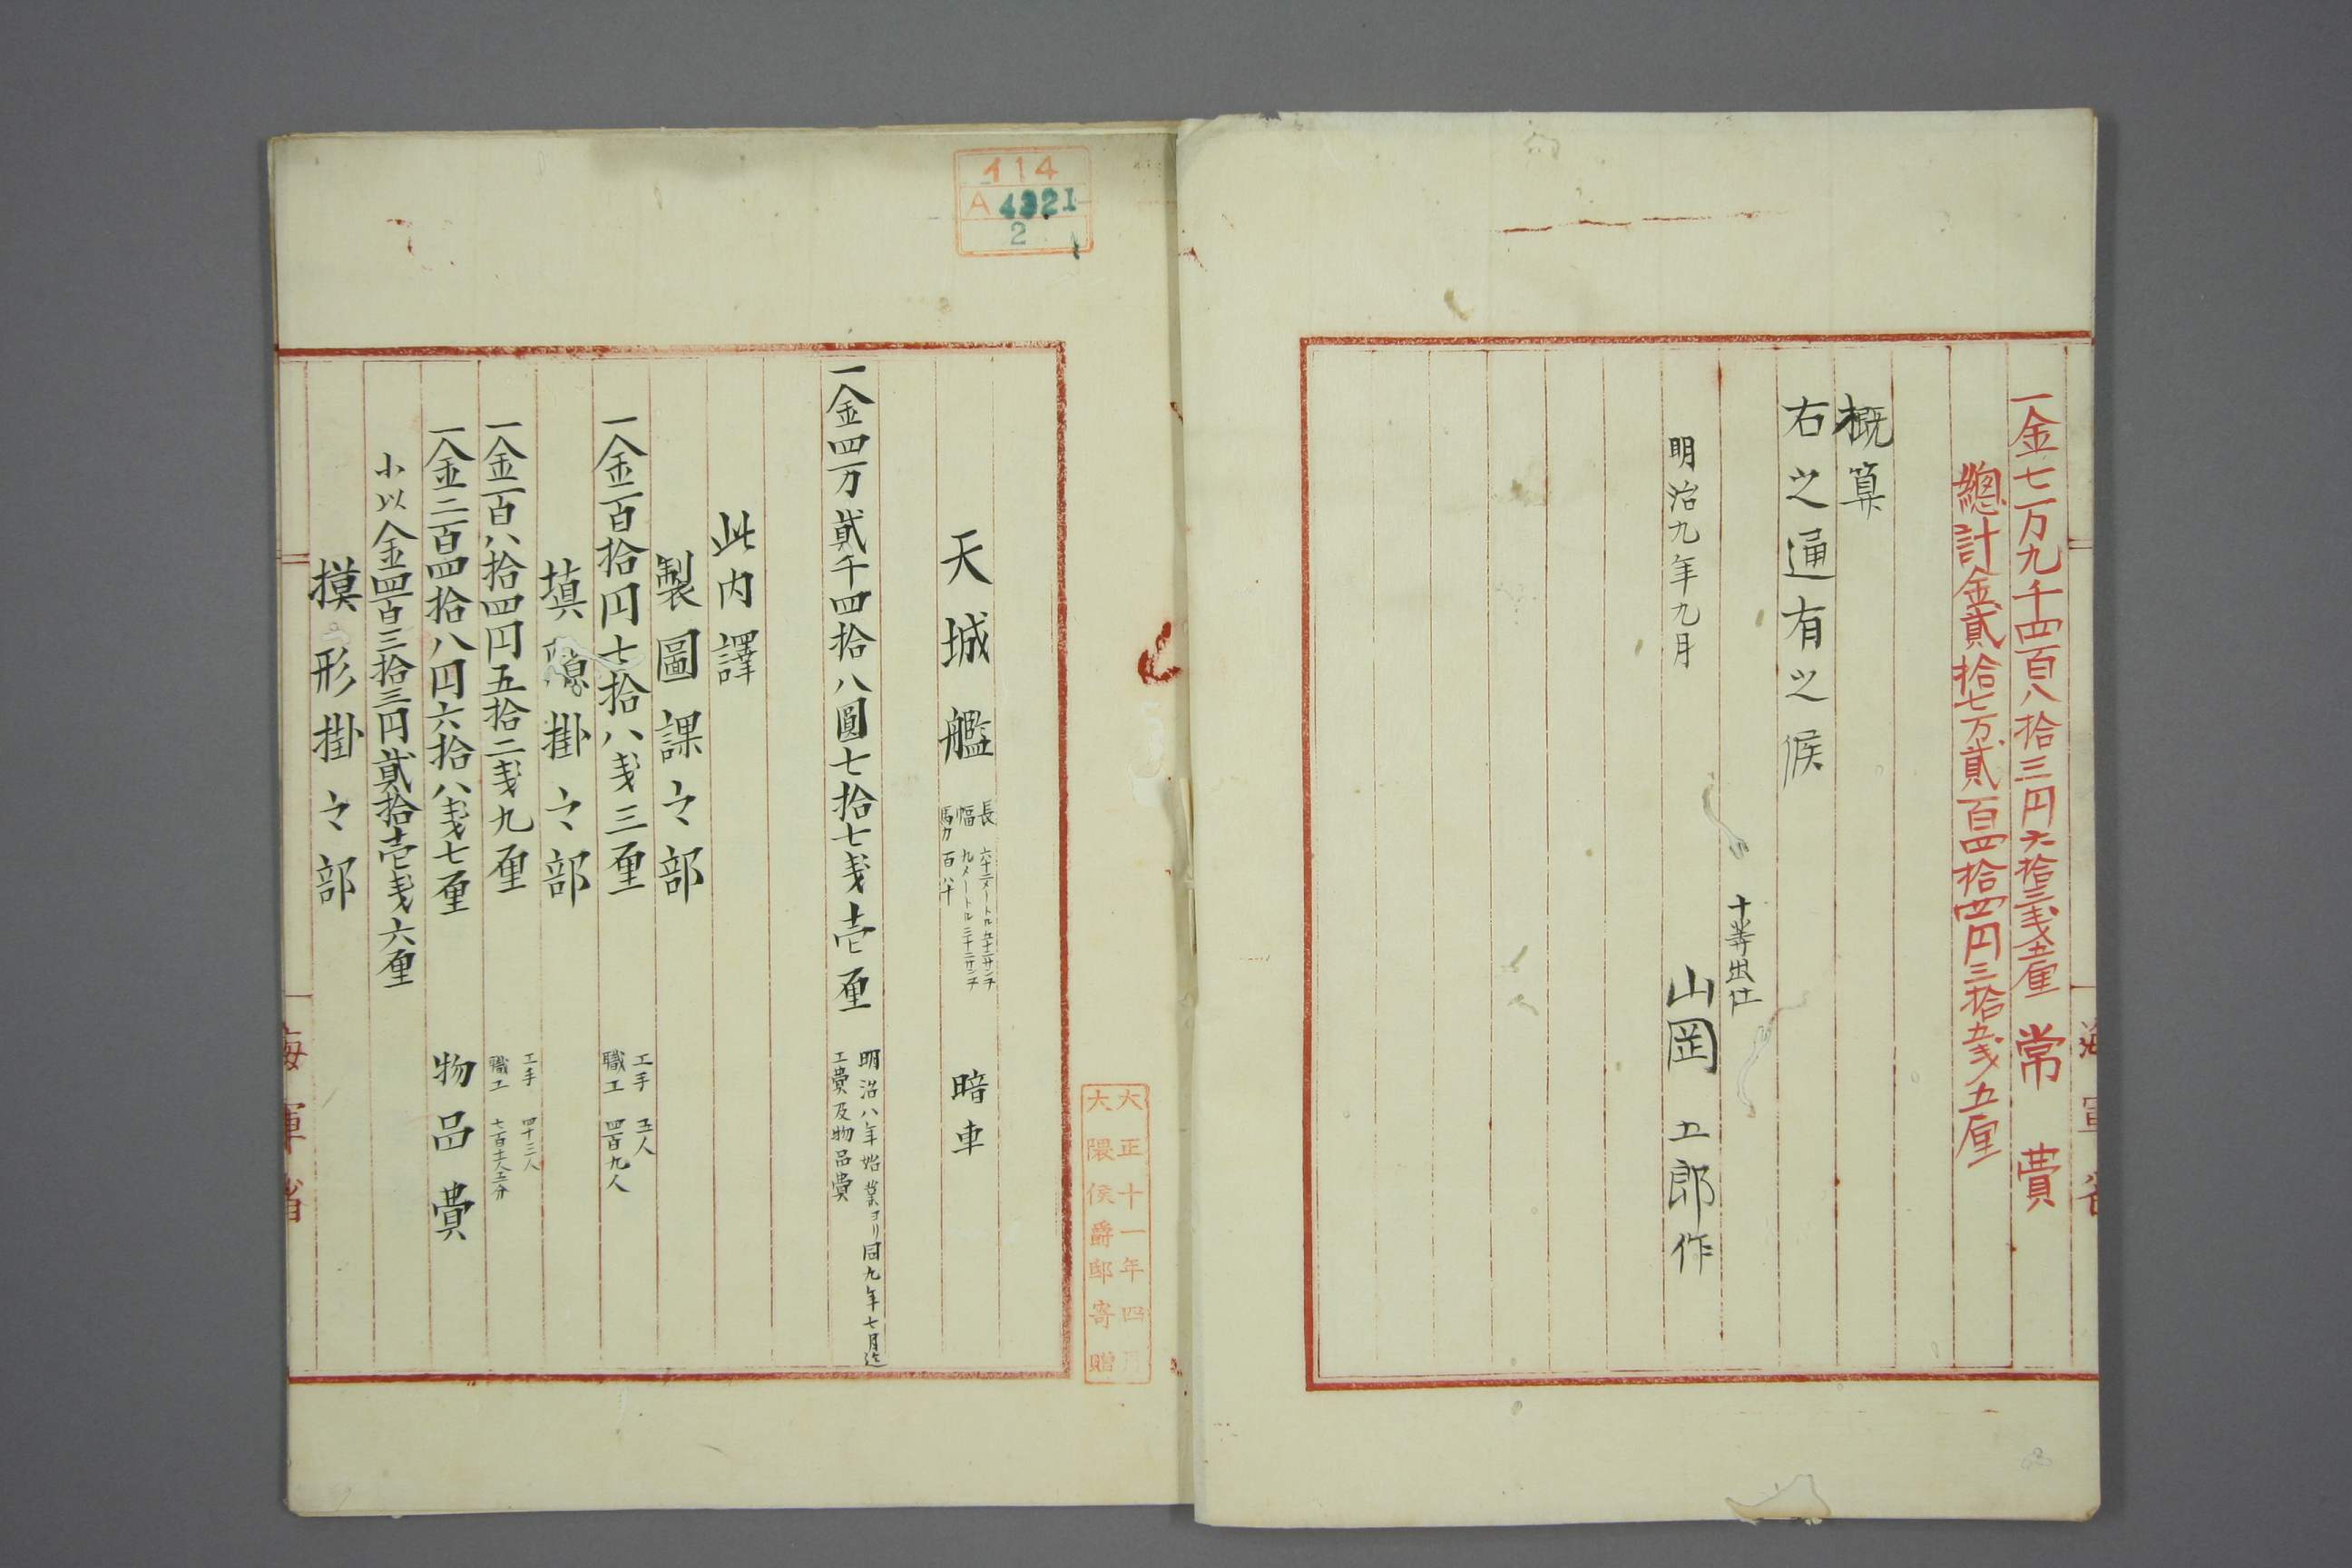 一金七万九千四百八拾三円六拾三戔五厘 常費
總計金貳拾七万貳百四拾四円三拾五戔五厘
概算
右之通有之候
十等出仕
明治九年九月 山岡 五郎作
海軍省
大正十一年四月
大隈侯爵邸寄贈
114
A 4321
2
天城艦 暗車
長 六十二メートル五十二サンチ
幅 九メートル三十二サンチ
馬力 百八十
一金四万貳千四拾八圓七拾七戔壱厘
明治八年始業ヨリ同九年七月迄
工費及物品費
此内譯
製圖課之部
一金百拾円七拾八戔三厘
工手 五人
職工 四百九人
填隙掛之部
一金百八拾四円五拾二戔九厘
工手 四十二人
職工
一金二百四拾八円六拾八戔七厘 物品費
小以金四百三拾三円貳拾壱戔六厘
摸形掛之部
海軍省